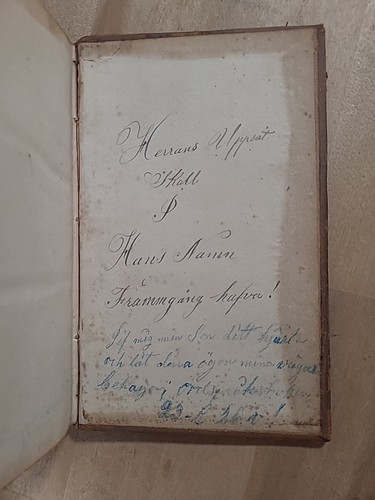 Herrans Uppsåt
Skall
I
Hans Namn
Främmgång hafva!
Gif mig min Son ditt hjerta
och låt dina ögon mina vägar
behaga i ordspråksboken
23 k 26 v!